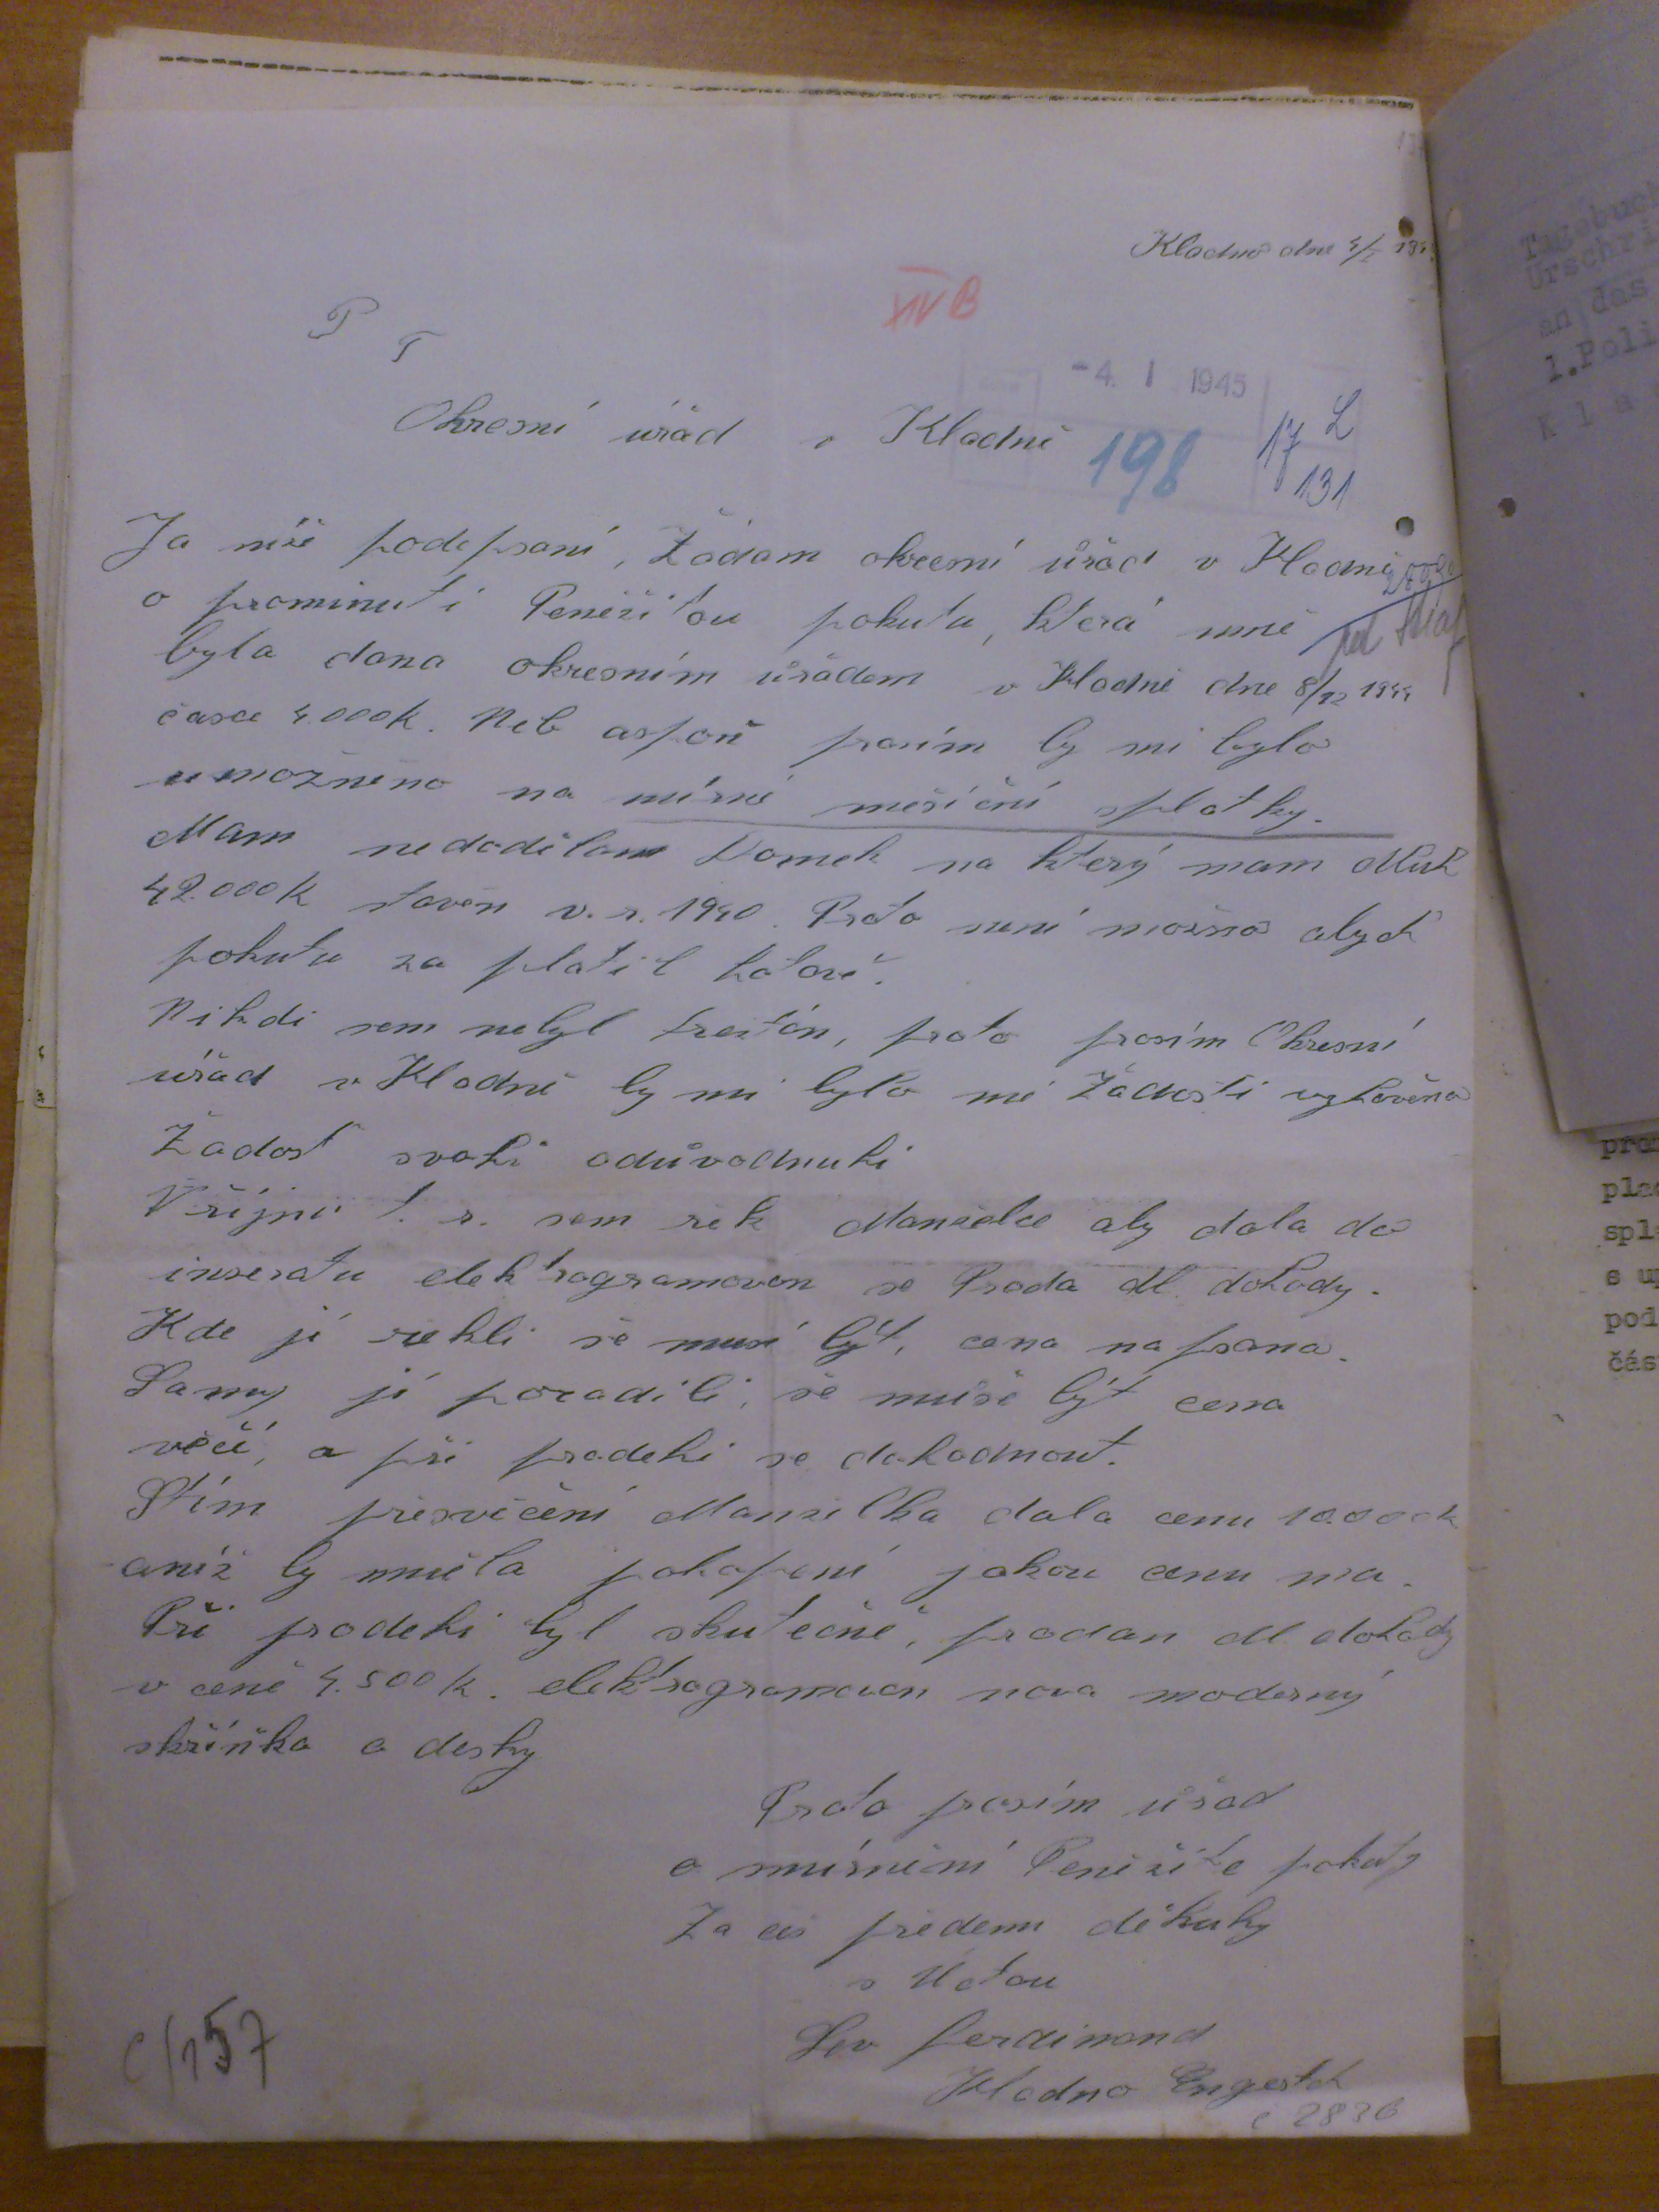 Kladno dne 4/I 194
XIV B
P T
-4. I 1945
Okresní úřad v Kladně
198
17 L
131
Ja níže podepsaní, Žádam okresní úřad v Kladně
o prominutí Peněžitou pokutu, která mně
byla dana okresním úřadem v Kladně dne 8/12 1944
časce 4.000K. Neb aspoň prosím by mi bylo
umožněno na mírné měsíční splatky.
Mam nedodělam Domek na který mam dluh
42.000K stavěn v. r. 1940. Proto není možno abych
pokutu za platil hotově.
Nikdi sem nebyl trestán, proto prosím Okresní
úřad v Kladně by mi bylo mé Žádosti vyhověno
Žadost svoki odůvodnuki
V říjnu t. r. sem řek Manželce aby dala do
inseratu elektrogramovon se Proda dl. dohody.
Kde jí řekli že musí být, cena napsana.
Samy jí poradili, že muže být cena
věčí, a při prodeki se dohodnout.
Stím přesvěčení Manželka dala cenu 10.000K
aniž by měla pohopení jakou cenu ma.
Při prodeki byl skutečně, prodan dl dohody
v ceně 4.500K. elektrogramovon nova moderný
skříňka a desky
Proto prosím úřad
o mírnění Peněžite pokuty
Za což předem děkuky
s Uctou
Lev ferdinand
Kladno Engerth
č 2836
c/157
Tagebuch
Urschri
an das
1.Poli
K l a
pro
pla
spl
s u
pod
čás